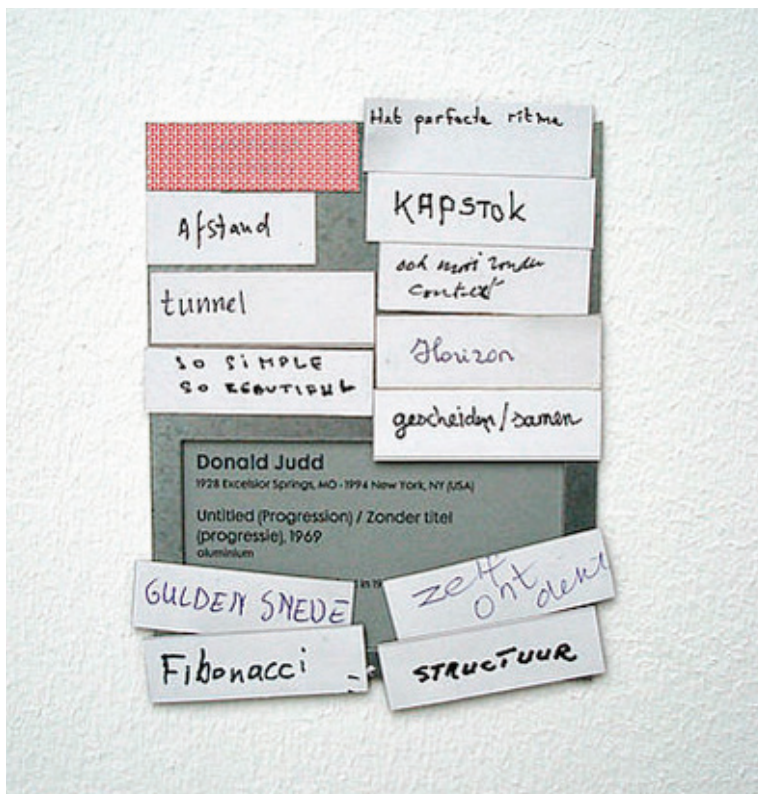 Het perfecte ritme
KAPSTOK
Afstand
ook mooi zonder
context
tunnel
Horizon
SO SIMPLE
SO BEAUTIFUL
gescheiden/samen
Donald Judd
1928 Excelsior Springs, MO - 1994 New York, NY (USA)
Untitled (Progression) / Zonder titel
(progressie), 1969
aluminium
in 19
GULDEN SNEDE
zelf
ont
dekt
Fibonacci
STRUCTUUR